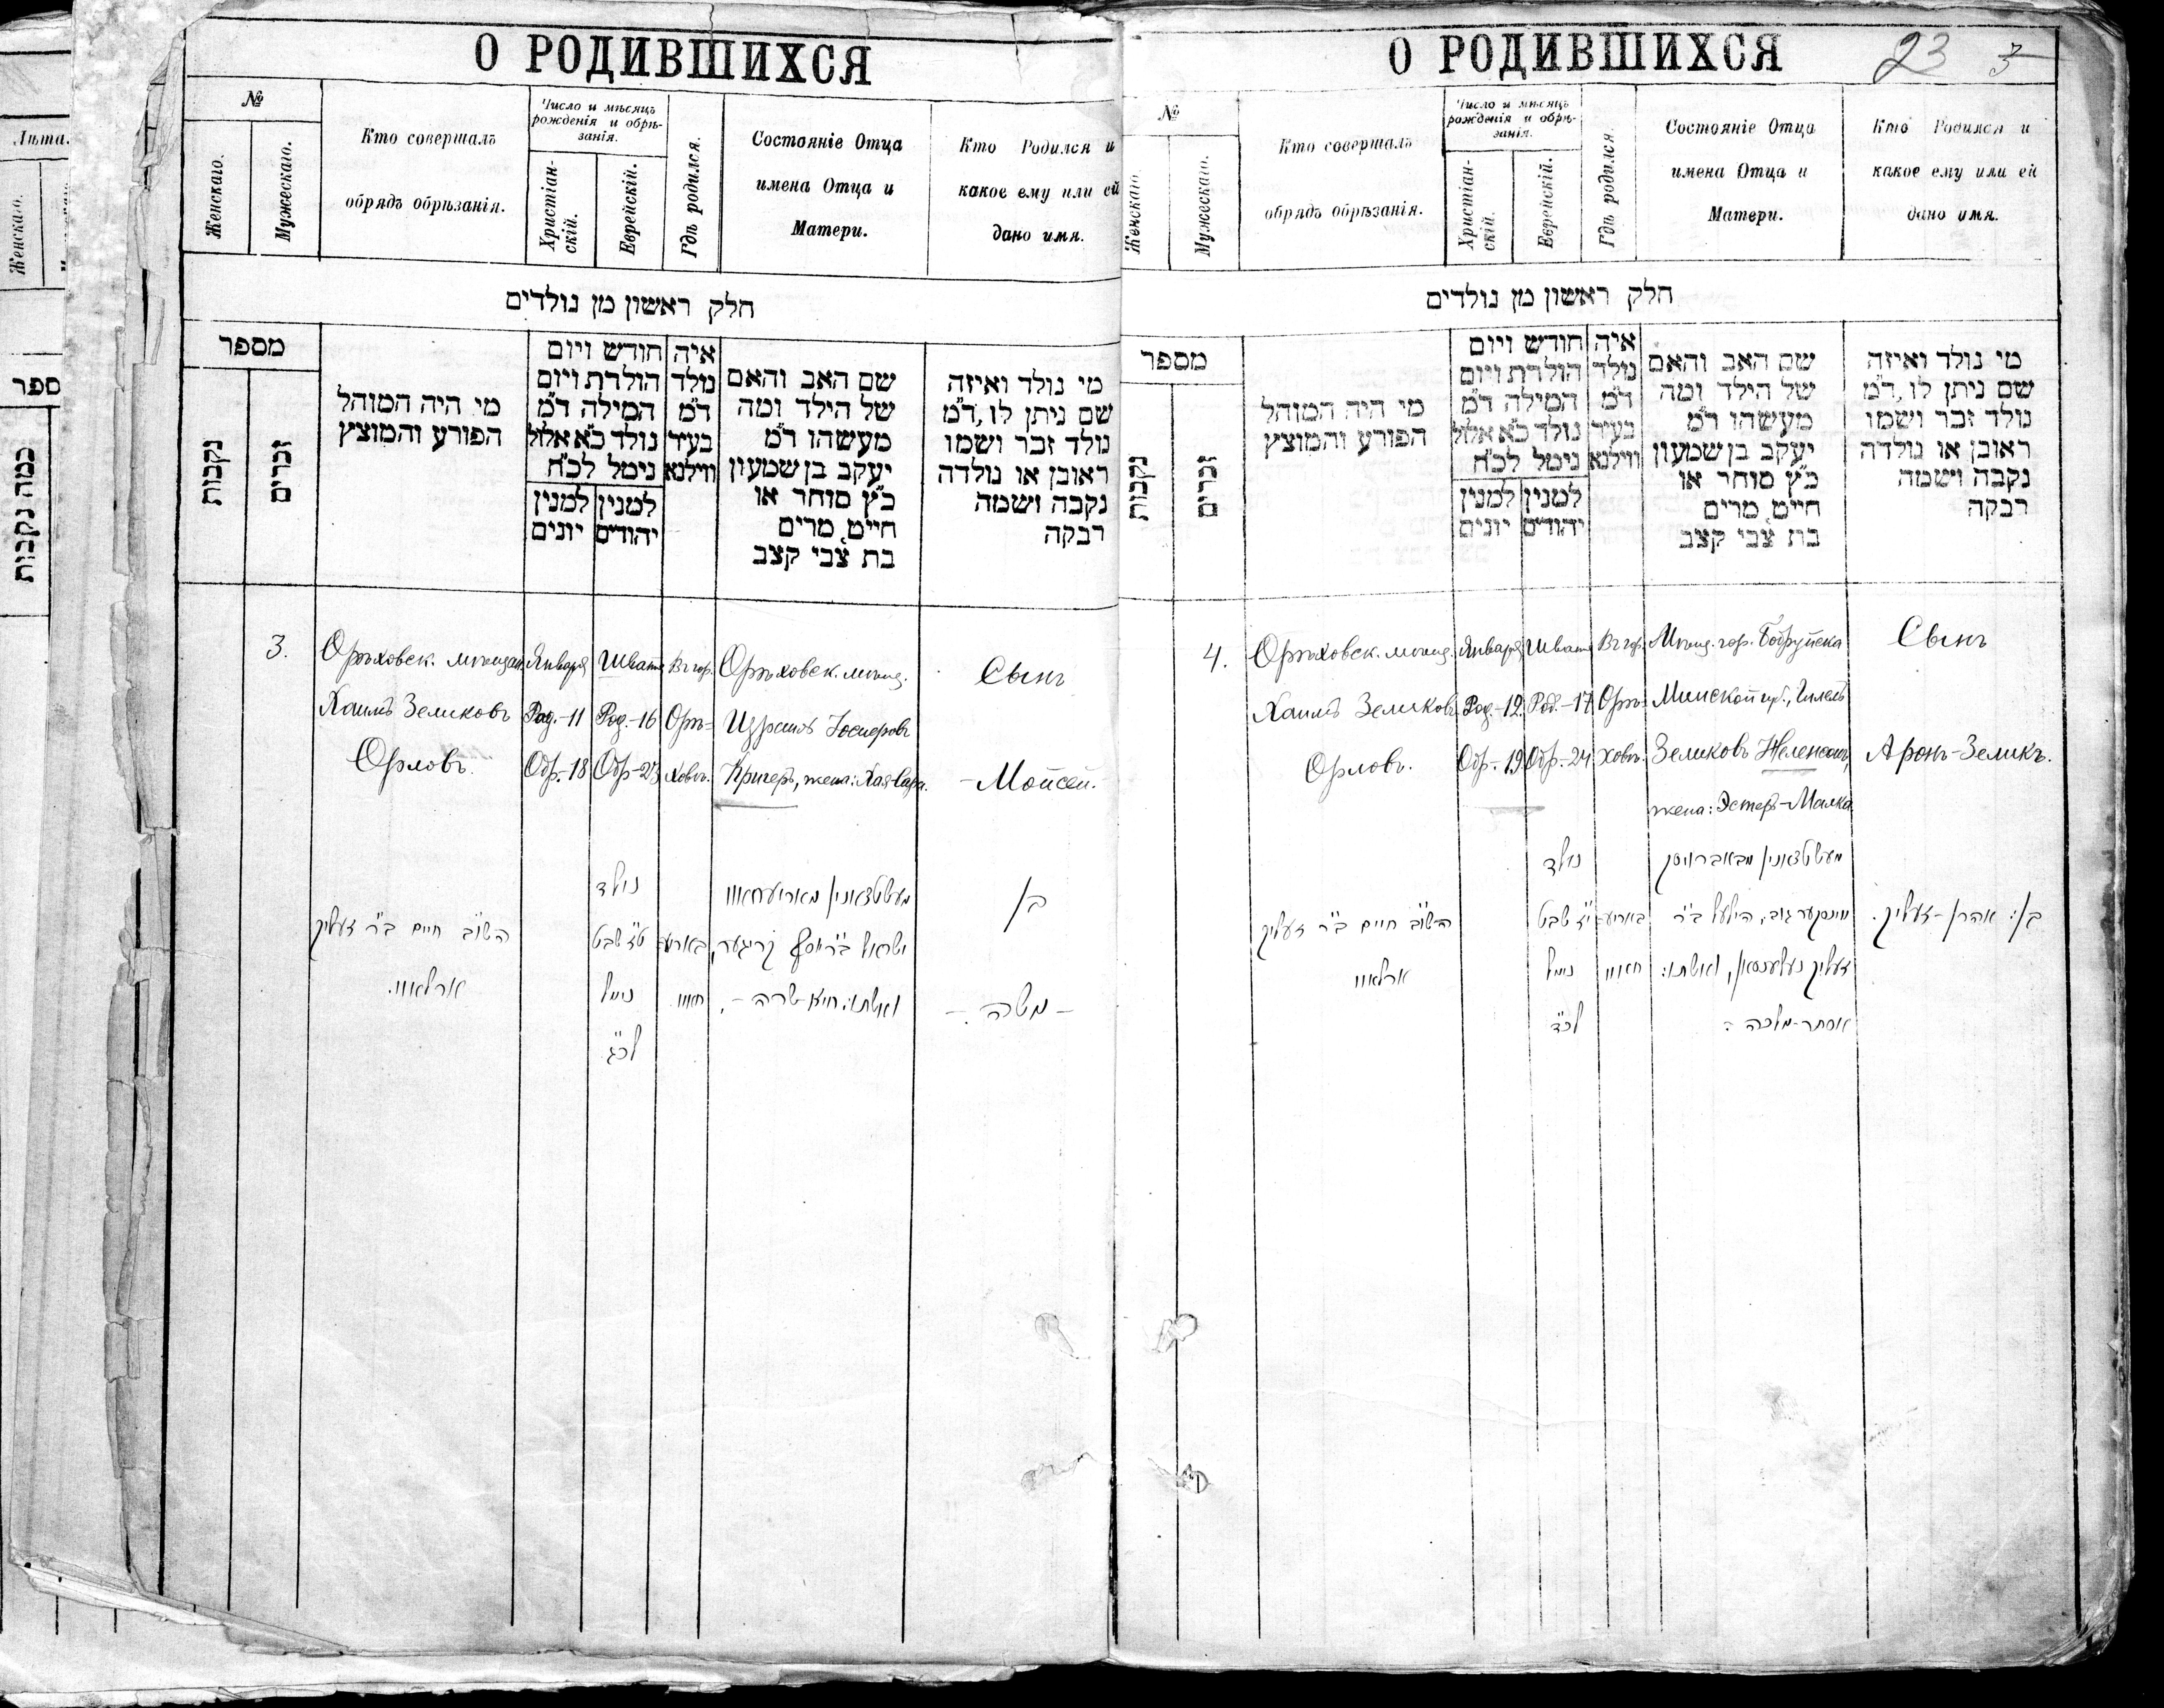 Лѣта.
Женскаго.
ספר
כמה נקבות
О РОДИВШИХСЯ
№
Женскаго.
Мужескаго.
Кто совершалъ
обрядъ обрѣзанія.
Число и мѣсяцъ
рожденія и обрѣ-
занія.
Христіан-
скій.
Еврейскій.
Гдѣ родился.
Состояніе Отца
имена Отца и
Матери.
Кто Родился и
какое ему или ей
дано имя.
חלק ראשון מן נולדים
מספר
נקבות
זכרים
מי היה המוהל
הפורע והמוצץ
חודש ויום
הולדת ויום
המילה ד״מ
נולד כ״א אלול
נימל לכ״ח
למנין יהודים
למנין יונים
איה
נולד
ד״מ
בעיר
ווילנא
שם האב והאם
של הילד ומה
מעשהו ד״מ
יעקב בן שמעון
כ״ץ סוחר או
חייט, מרים
בת צבי קצב
מי נולד ואיזה
שם ניתן לו, ד״מ
נולד זכר ושמו
ראובן או נולדה
נקבה ושמה
רבקה
3.
Орѣховск. мѣщан.
Хаимъ Зеликовъ
Орловъ.
Января
Род.-11
Обр.-18
Шватъ
Род.-16
Обр-23
Въ гор.
Орѣ-
ховѣ.
Орѣховск. мѣщ.
Израиль Іосифовъ
Кригеръ, жена: Хая-Сара.
Сынъ
-Мойсей.
השו״ב חיים ב״ר זעליק
ארלאוו.
נולד
ט״ז שבט
נימול
לכ״ג
באריע
חאוו.
מעשטצאנין מאריעחאוו
ישראל ב״ר יוסף קריגער,
ואשתו: חיא-שרה -.
בן
- משה -
О РОДИВШИХСЯ
23 3
№
Женскаго.
Мужескаго.
Кто совершалъ
обрядъ обрѣзанія.
Число и мѣсяцъ
рожденія и обрѣ-
занія.
Христіан-
скій.
Еврейскій.
Гдѣ родился.
Состояніе Отца
имена Отца и
Матери.
Кто Родился и
какое ему или ей
дано имя.
חלק ראשון מן נולדים
מספר
נקבות
זכרים
מי היה המוהל
הפורע והמוצץ
חודש ויום
הולדת ויום
המילה ד״מ
נולד כ״א אלול
נימל לכ״ח
למנין יהודים
למנין יונים
איה
נולד
ד״מ
בעיר
ווילנא
שם האב והאם
של הילד ומה
מעשהו ד״מ
יעקב בן שמעון
כ״ץ סוחר או
חייט, מרים
בת צבי קצב
מי נולד ואיזה
שם ניתן לו, ד״מ
נולד זכר ושמו
ראובן או נולדה
נקבה ושמה
רבקה
4.
Орѣховск. мѣщ.
Хаимъ Зеликовъ
Орловъ.
Января
Род.-12.
Обр.-19
Шватъ
Род.-17
Обр.-24
Въ гор.
Орѣ-
ховѣ.
Мѣщ. гор. Бобруйска
Минской губ., Гилель
Зеликовъ Неленсонъ,
жена: Эстеръ-Малка.
Сынъ
Аронъ-Зеликъ.
השו״ב חיים ב״ר זעליק
ארלאוו
נולד
י״ז שבט
נימול
לכ״ד
באריע
חאוו
מעשטצאנין מבאברויסק
מינסקער גוב, הילעל ב״ר
זעליק נעלענסאן, ואשתו:
אסתר-מלכה :
בן: אהרן-זעליק.